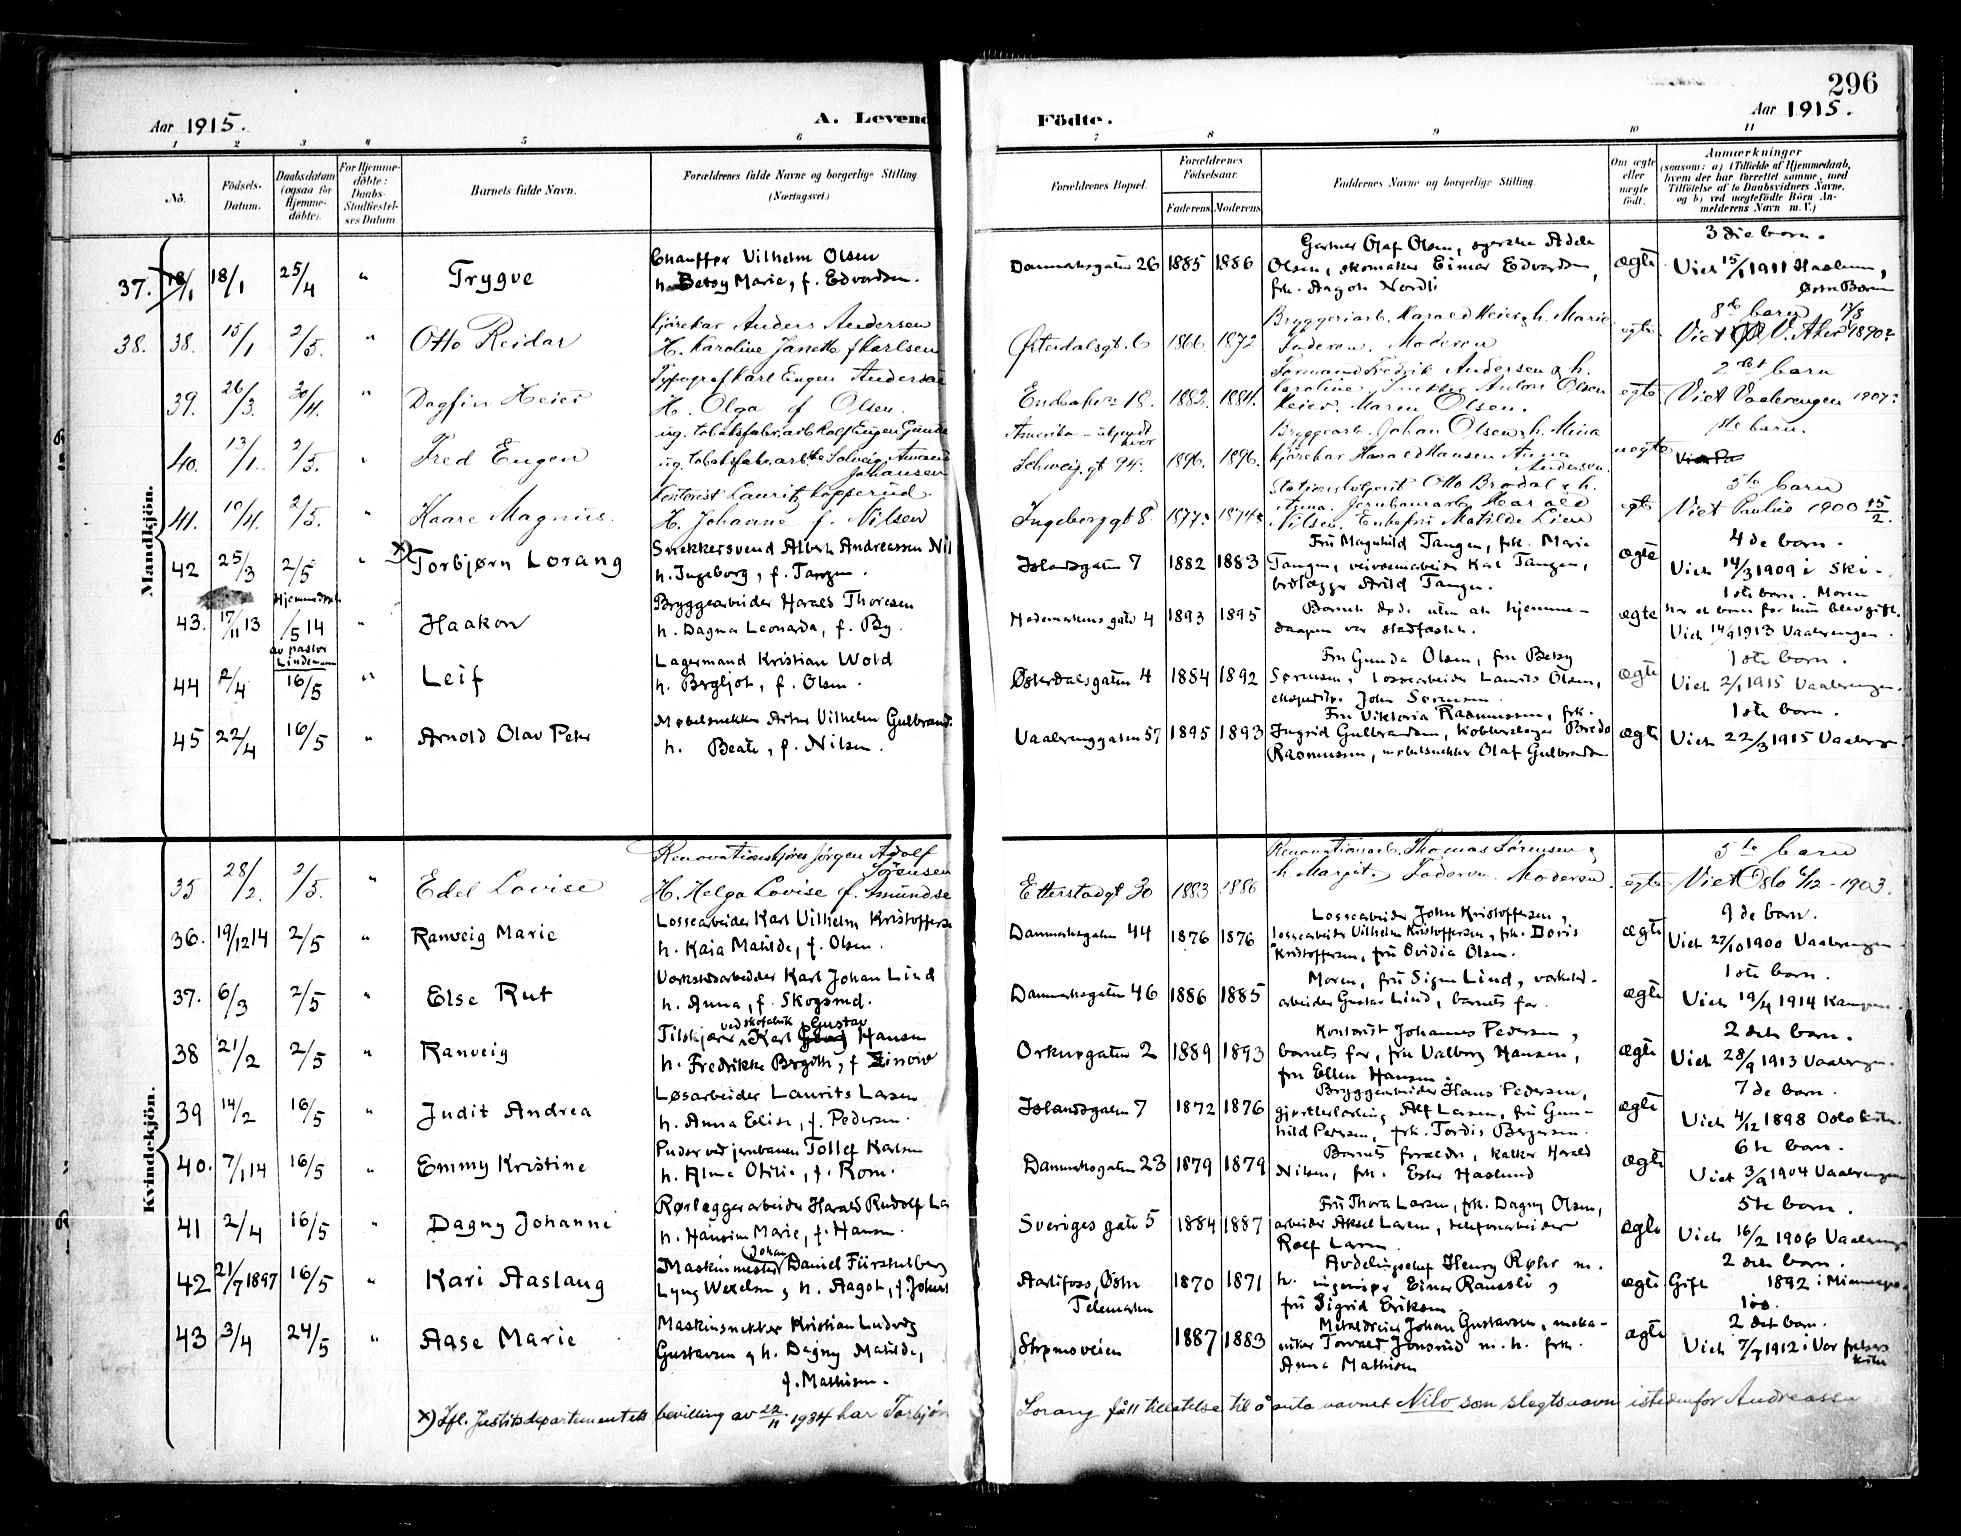 296
Aar 1915. A. Levend Födte. Aar 1915.
1 2 3 4 5 6 7 8 9 10 11
No. Födsels-Datum. Daabsdatum (ogsaa for Hjemme-döbte). For Hjemme-döbte: Daabs Stadfæstel-ses Datum Barnets fulde Navn. Forældrenes fulde Navne og borgerlige Stilling. (Næringsvei) Forældrenes Bopæl. Forældrenes Födselsaar. Faderens Moderens Faddernes Navne og borgerlige Stilling. Om ægte eller uægte födt. Anmærkninger (saasom: a) (Tilfælde af Hjemmedaab, hvem der har forrettet samme, med Tilföielse af to Daabsvidners Navne. og b) ved uægtefödte Börn An-melderens Navn m. V.)
Mandkjön.
37. 18/1 18/1 25/4 " Trygve
Chauffør Vilhelm Olsen
h. Betsy Marie, f. Edvardsen.
Danmarksgaten 26 1885 1886
Gartner Olaf Olsen, Adele
Olsen, skomaker Einar Edvardsen,
frk. Aagot Nordli
ægte
3 die barn.
Viet 15/1 1911 Haslum,
38. 38. 15/1 2/5. " Otto Reidar
Kjørekar Anders Andersen
H. Karoline Janette f Karlsen
Østerdalsgt. 6 1866. 1872
Bryggeriarb. Harald Heier & h. Marie
Faderen. Moderen
egte
8de barn 13/3
Viet V. Aker 1890?
39. 26/3. 30/4. " Dagfin Heier
Typograf Karl Eugen Andersen
H. Olga f Olsen.
18. 1882. 1884.
Formand Fredrik Andersen & h.
Karoline, Snekker Anton Olsen
Heier. Maren Olsen.
egte
2det barn
Viet Vaalerengen 1907?
40. 13/1. 2/5. " Fred Eugen
ug. tobaksfabr.arb. Rolf Eugen Gunde
ug. tobaksfabr.arb.ske Solveig Amanda
Johansen
Amerika - utpendt
Schweig.gt 94. 1896. 1896.
Bryggearb. Johan Olsen & h. Mina
Kjørekar Harald Hansen Anna
Andersen.
uegte
1ste barn.
41. 10/4. 2/5. " Kaare Magnus.
Kontorist Lauritz Kopperud.
H. Johanne f. Nilsen
Ingeborggt 8. 1877? 1874?
Stationsbetjent Otto Brodal & h.
Agna. Jernbanearb. Harald
Nilsen. Enkefru Matilde Lien
egte
5te barn
Viet Paulus 1900 15/2.
42 25/3 2/5 " x) Torbjørn Lorang
Snekkersvend Albert Andreassen Nil
h. Ingeborg, f. Tangen.
Islandsgaten 7 1882 1883
Fru Magnhild Tangen, frk. Marie
Tangen, veivæsenarbeider Karl Tangen,
brolægger Arild Tangen.
ægte
4 de barn.
Viet 14/3 1909 i Ski.
43. 17/11 13 Hjemmedøbt /5 14 av pastor Lindemann " Haakon
Bryggearbeider Harald Thoresen
h. Dagmar Leonarda, f. By.
Hedemarkens gate 4 1893 1895
Barnet døde uten at hjemme-
daapen var stadfæstet.
ægte
1ste barn. Moren
har et barn før hun blev gift.
Viet 14/9 1913 Vaalerengen.
44 2/4 16/5 " Leif
Lagermand Kristian Wold
h. Bergljot, f. Olsen.
Østerdalsgaten 4 1884 1892
Fru Gunda Olsen, fru Betsy
Sørensen, lossearbeider Laurits Olsen,
ekspeditør John Sørensen
ægte
1ste barn.
Viet 2/1 1915 Vaalerengen.
45 22/4 16/5 " Arnold Olav Peter
Møbelsnekker Artur Vilhelm Gulbrand
h. Beate, f. Nilsen.
Vaalerenggaten 57 1895 1893
Fru Viktoria Rasmussen, frk.
Ingrid Gulbrandsen, kobberslager Bredo
Rasmussen, møbelsnekker Olaf Gulbrandsen
ægte
1ste barn.
Viet 22/3 1915 Vaalereng.
Kvindekjön.
35 28/2. 2/5. " Edel Lovise
Renovationskjører Jørgen Adolf
Sörensen
H. Helga Lovise f. Amundse
Etterstadgt 30 1883 1886
Renovationsarb. Thomas Sörensen &
h. Margit. Faderen. Moderen.
egte
5te barn
Viet Oslo 6/12 - 1903.
36. 19/12 14 2/5 " Ranveig Marie
Lossearbeider Karl Vilhelm Kristofferse
h. Kaia Matilde, f. Olsen.
Danmarksgaten 44 1876 1876
Lossearbeider John Kristoffersen,
lossearbeider Vilhelm Kristoffersen, frk. Doris
Kristoffersen, fru Ovidia Olsen.
ægte
9 de barn.
Viet 27/10 1900 Vaalerengen
37. 6/3 2/5 " Else Rut
Verkstedsarbeider Karl Johan Lind
h. Anna, f. Skogsrud.
Danmarksgaten 46 1886 1885
Moren, fru Signe Lind, verksted.
arbeider Gustav Lind, barnets far.
ægte
1ste barn.
Viet 19/4 1914 Kampen.
38 21/2 2/5 " Ranveig
ved skofabrik Gustav
Tilskjærer Karl Hansen
h. Fredrikke Birgitte, f Zinow
Orknøgaten 2 1889 1893
Kontorist Johannes Pedersen,
barnets far, fru Valborg Hansen,
fru Ellen Hansen.
ægte
2 det barn.
Viet 28/9 1913 Vaalerengen.
39 14/2 16/5 " Judit Andrea
Løsarbeider Laurits Larsen
h. Anna Elise, f. Pedersen.
Islandsgaten 7 1872 1876
Bryggearbeider Hans Pedersen,
gjørtlerlærling Alf Larsen, fru Gun-
hild Petersen, frk. Tordis Bergersen.
ægte
7 de barn.
Viet 4/12 1898 Oslo kirke.
40. 7/1 14 16/5 " Emmy Kristine
Pudser ved jernbanen Tollef Karlsen
h. Alma Otilie, f. Rom.
Danmarksgaten 23 1879 1879
Barnets forældre, kasker Harald
Nilsen, frk. Ester Haslund
ægte
6te barn.
Viet 3/9 1904 Vaalerengen
41 2/4 16/5 " Dagny Johanne
Rørlæggerarbeider Harald Rudolf La
h. Hansine Marie, f. Hansen.
Sveriges gate 5 1884 1887
Fru Thora Larsen, frk. Dagny Olsen,
arbeider Aksel Larsen, telefonarbeider
Rolf Larsen
ægte
5te barn.
Viet 16/2 1906 Vaalereng
42 21/7 1897 16/5 " Kari Aaslaug
Johan
Maskinmester Daniel Fürstenberg
Lyng Wexelsen & h. Aagot, f. Johns
Aarlifoss, Østre
Telemarken
1870 1871
Avdelingschef Henry Røhr m.
h. ingeniør Einar Raneslå,
fru Sigrid Eriksen
ægte
2 det barn.
Gift 1892 i Minneapo-
lis.
43 3/4 24/5 " Aase Marie
Maskinsnekker Kristian Ludvig
Gustavsen & h. Dagny Matilde,
f. Mathisen.
Strømsveien 1887 1883
Metaldreier Johan Gustavsen, meka-
niker Torvald Jonsrud m. h. frk.
Anna Mathisen
ægte
2 det barn.
Viet 7/7 1912 i Vor frelsers
kirke
x) Ifl. Justitsdepartementets bevilling av 22/11 1934 har Torbjørn Lorang fått tillatelse til å anta navnet Nilo som slegtsnavn istedenfor Andreassen